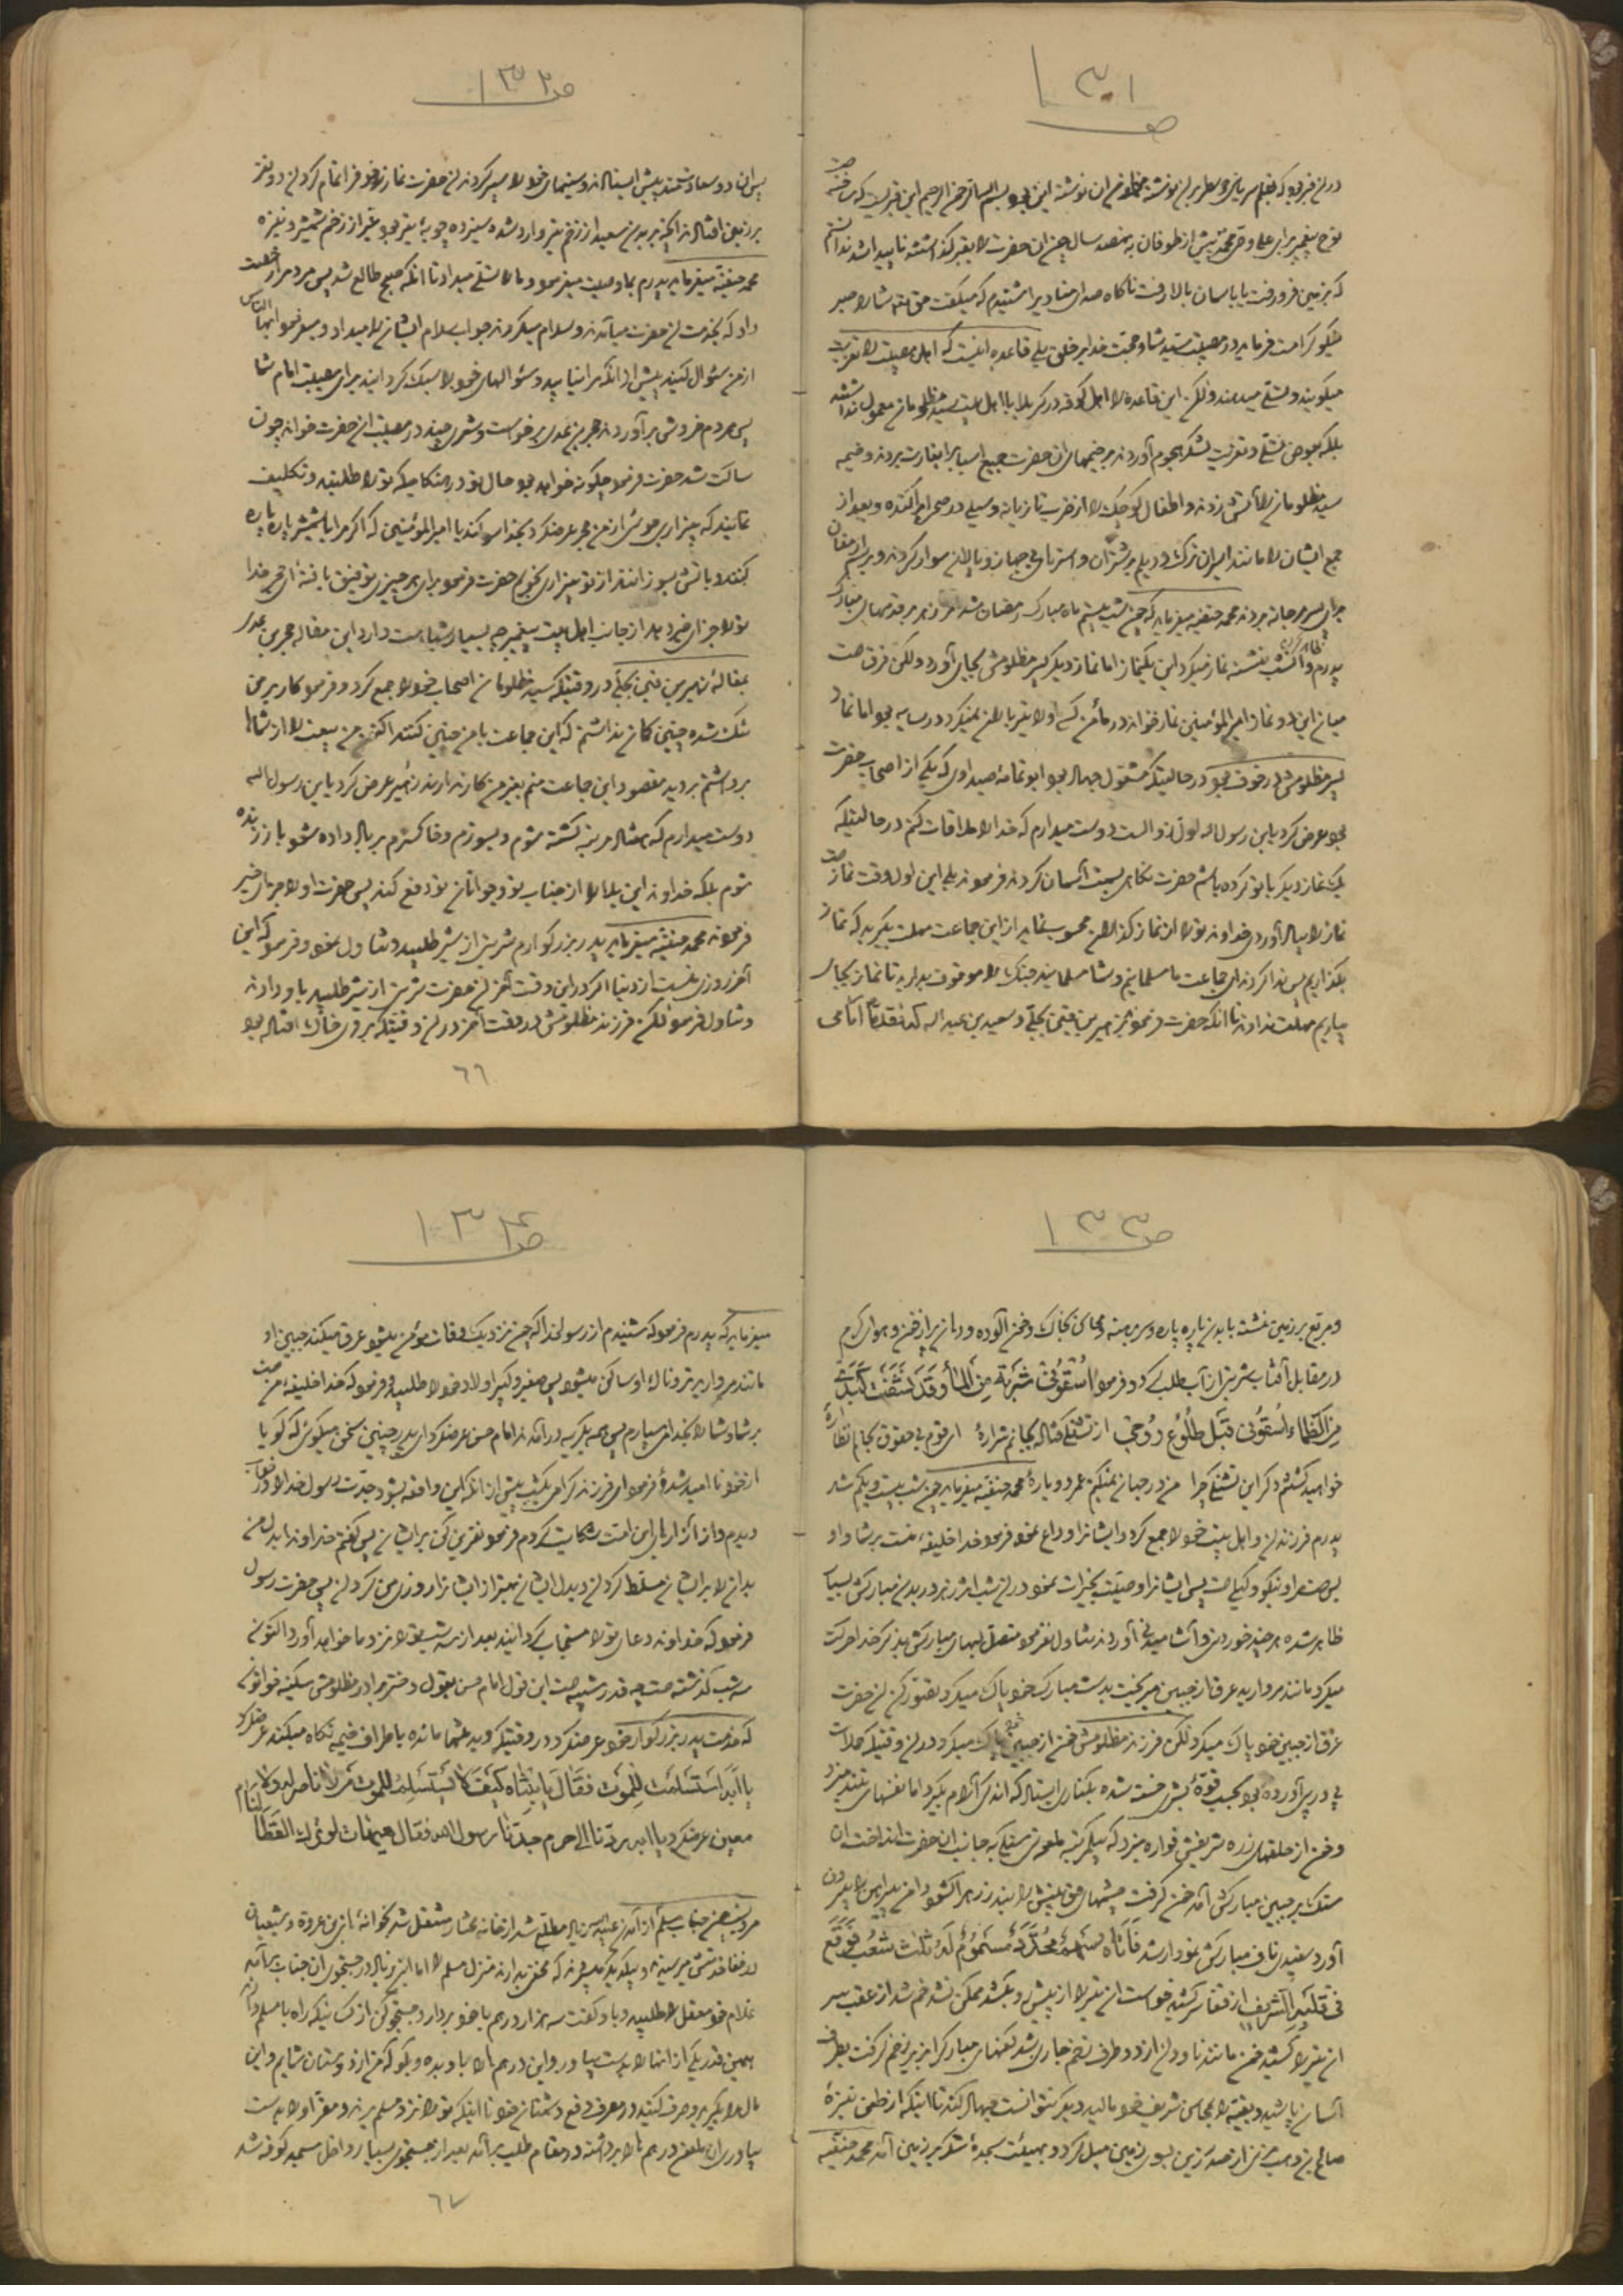 ص ۱۳۱
در آن قبر بود که بخط سریانی و سطر بر آن نوشته بود مضمون آن نوشته این بود بسم الله الرحمن الرحیم این قبریست که
نوح پیغمبر برای علی وصی محمد پیش از طوفان به هفتصد سال چون آن حضرت را بقبر گذاشتند ناپیدا شد ندانستم
که بزمین فرو رفت یا باسمان بالا رفت ناگاه صدای منادیرا شنیدم که میگفت حق تعالی شما را صبر
نیکو کرامت فرماید در مصیبت سید شما و حجت خدا بر خلق بلی قاعده اینست که اهل مصیبت را تعزیت
میگویند و تسلی میدهند ولکن این قاعده را اهل کوفه در کربلا با اهل بیت سید مظلومان معمول نداشتند
بلکه بعوض تسلی و تعزیت لشکر هجوم آوردند بر خیمهای آن حضرت جمیع اسبابرا بغارت بردند و خیمه
سید مظلومانرا آتش زدند و اطفال کوچک را از ضرب تازیانه و سیلی در صحرا پراکنده و بعد از
جمع ایشان را مانند اسیران ترک و دیلم بر شتران و استرهای بی جهاز و پالان سوار کردند و برسم ارمغان
برای پسر مرجانه بردند محمد حنفیه میفرماید که چون شب بیستم ماه مبارک رمضان شد اثر زهر بقدمهای مبارک
پدرم و آنشب نشسته نماز میکرد این یکنماز اما نماز دیگر پسر مظلومش بجای آورد ولکن فرق است
میان این دو نماز امیرالمؤمنین نماز خواند در مأمن کسی او را تیرباران نمیکرد در سایه بود اما نماز
پسر مظلومش در خوف بود در حالتیکه مشغول جهاد بود ابو ثمامه صیداوی که یکی از اصحاب حضرت
بود عرض کرد یابن رسول الله اول زوالست دوست میدارم که خدا را ملاقات کنم در حالتیکه
یک نماز دیگر با تو کرده باشم حضرت نگاهی بسمت آسمان کردند فرمودند بلی این اول وقت نماز است
نماز را بیاد آوردی خداوند تو را از نماز گذاران محسوب نماید از این جماعت مهلت بگیرید که نماز
بگذاریم پس ندا کردند ای جماعت ما مسلمانیم و شما مسلمانید جنگ را موقوف بدارید تا نماز بجای
بیاریم مهلت ندادند تا آنکه حضرت فرمود بزهیر بن قین بجلی و سعید بن عبدالله که تقدما امامی
ص ۱۳۲
پس آن دو سعادتمند پیش ایستادند و سینهای خود را سپر کردند آن حضرت نماز خوف را تمام کرد آن دو نفر
بر زمین افتادند آنچه بر بدن سعید از زخم تیر وارد شده سیزده چوبه تیر بود بغیر از زخم شمشیر و نیزه
محمد حنفیه میفرماید پدرم بما وصیت میفرمود و ما را تسلی میداد تا آنکه صبح طالع شد پس مردم را رخصت
داد که بخدمت آن حضرت میآمدند و سلام میکردند جواب سلام ایشان را میداد و میفرمود ایها الناس
از من سئوال کنید پیش از آنکه مرا نیابید و سئوالهای خود را سبک کردانید برای مصیبت امام شما
پس مردم خروش برآوردند حجر بن عدی برخواست و شعری چند در مصیبت آن حضرت خواند چون
ساکت شد حضرت فرمود چگونه خواهد بود حال تو در هنگامیکه تو را طلبند و تکلیف
نمایند که بیزاری جوئی از من حجر عرضکرد بخدا سوگند یا امیرالمؤمنین که اگر مرا با شمشیر پاره پاره
کنند و با آتش بسوزانند از تو بیزاری نجویم حضرت فرمود برای هر چیزی توفیق یافته ای حجر خدا
تو را جزای خیر دهد از جانب اهل بیت پیغمبر چه بسیار شباهت دارد این مقاله حجر بن عدی
بمقاله زهیر بن قین بجلی در وقتیکه سید مظلومان اصحاب خود را جمع کرد و فرمود کار بر من
تنک شده چنین گمان نداشتم که این جماعت با من چنین کنند اکنون من بیعت را از شما
برداشتم بروید مقصود این جماعت منم بغیر من کار ندارند زهیر عرض کرد یابن رسول الله
دوست میدارم که هفتاد مرتبه کشته شوم و بسوزم و خاکسترم بر باد داده شود باز زنده
شوم بلکه خداوند این بلا را از جناب تو و جوانان تو دفع کند پس حضرت او را جزای خیر
فرمودند محمد حنفیه میفرماید پدر بزرگوارم شربتی از شیر طلبید و تناول نمود و فرمود که این
آخر روزی منست از دنیا اگر در این وقت آخر آن حضرت شربتی از شیر طلبید باو دادند
و تناول فرمود لکن فرزند مظلومش در وقت آخر در آن وقتیکه بر روی خاک افتاده بود
۶۶
ص ۱۳۳
و مربع بر زمین نشسته با بدن پاره پاره و سر برهنه و محاسن بخاک و خون آلوده و دهان پر از خون و هوای گرم
در مقابل آفتاب شربتی از آب طلب کرد و فرمود اُسْقُونی شَرْبَةً مِنَ الْماءِ وَقَدْ نَشَفَتْ کَبِدی
مِنَ الظَّماءِ اُسْقُونی قَبْلَ طُلُوعِ رُوحی از تشنگی فتاده بجانم شراره ای قوم بی حقوق بحالم نظاره
خواهید کشتنم دگر این تشنگی چرا من در جهان نمیکنم عمر دوباره محمد حنفیه میفرماید چون شب بیست و یکم شد
پدرم فرزندان و اهل بیت خود را جمع کرد و ایشانرا وداع نمود فرمود خدا خلیفه منست بر شما و او
بس است مرا و نیکو وکیلی است پس ایشانرا وصیت بخیرات نمود در آن شب اثر زهر در بدن مبارکش بسیار
ظاهر شده هر چند خوردنی و آشامیدنی آوردند تناول نفرمود متصل لبهای مبارکش بذکر خدا حرکت
میکرد مانند مروارید عرق از جبین میریخت بدست مبارک خود پاک میکرد تصور کن آن حضرت
عرق از جبین خود پاک میکرد لکن فرزند مظلومش خون از جبین خود پاک میکرد در آن وقتیکه حملات
پی در پی آورده بود بحسب قوه بشری خسته شده بکناری ایستاد که اندکی آرام بگیرد اما نفسهای تند میزد
و خون از حلقهای زره شریفش فواره میزد که یکمرتبه ملعونی سنگی به جانب آن حضرت انداخت آن
سنک بر جبین مبارکش آمد خون گرفت چشمهای حق بینش را بند زره را گشود دامن پیراهن را بیرون
آورد سفیدی ناف مبارکش نمودار شد فَاَتاهُ سَهْمٌ مُحَدَّدٌ مَسْمُومٌ لَهُ ثَلاثُ شُعَبٍ فَوَقَعَ
فی قَلْبِهِ الشَّریفِ از قفا سر کشید خواست آن تیر را از پیش رو بکشد ممکن نشد خم شد از عقب سر
آن تیر را کشید خون مانند ناودان از دو طرف زخم جاری شد کفهای مبارک را زیر زخم گرفت بطرف
آسمان پاشید و بقیه را بمحاسن شریف خود مالید و دیگر نتوانست جهاد کند تا اینکه از طعن نیزه
صالح بن وهب مزنی از صدر زین بسوی زمین میل کرد و بهیئت سجده شکر بر زمین آمد محمد حنفیه
ص ۱۳۴
میفرماید که پدرم فرمود که شنیدم از رسولخدا که چون نزدیک وفات مؤمن میشود عرق میکند جبین او
مانند مروارید تر و ناله او ساکن میشود پس صغیر و کبیر اولاد خود را طلبید و فرمود که خدا خلیفه من است
بر شما و شما را بخدا میسپارم پس همه بگریه در آمدند امام حسن عرضکرد ای پدر چنین سخن میگوئی که گویا
از خود ناامید شده فرمود ای فرزند گرامی یکشب پیش از آنکه این واقعه بشود جدت رسول خدا را در خواب
دیدم و از آزارهای این امت شکایت کردم فرمود نفرین کن بر ایشان پس گفتم خداوندا بدل من
بدانرا بر ایشان مسلط گردان و بدل ایشان بهتر از ایشانرا روزی من گردان پس حضرت رسول
فرمود که خداوند دعای تو را مستجاب گردانید بعد از سه شب تو را نزد ما خواهد آورد اکنون
سه شب گذشته است چه قدر شبیه است این قول امام حسن بقول دختر برادر مظلومش سکینه خواتون
که خدمت پدر بزرگوار خود عرضکرد در وقتیکه دید تنها مانده باطراف خیمه نگاه میکند عرضکرد
یا اَبَهْ اَسْتَسْلَمْتَ لِلْمَوْتِ فَقالَ یا بِنْتاهُ کَیْفَ لا یَسْتَسْلِمُ لِلْمَوْتِ مَنْ لا ناصِرَ لَهُ وَلا
معین عرضکرد یا ابه ردنا الی حرم جدنا رسول الله فقال هیهات لو ترک القطا لنام
مرویست چون جناب مسلم از آمدن عبیدالله زیاد مطلع شد از خانه مختار منتقل شد بخوانه هانی بن عروه و شیعیان
در خفا خدمتش میرسیدند و بیکدیگر میسپردند که مخفی بدارند منزل مسلم را اما ابن زیاد در جستجوی آن جناب برآمد
غلام خود معقل را طلبید و باو گفت سه هزار درهم با خود بردار و جستجو کن از کسانیکه راه با مسلم دارند
همین قدر یکی از آنها را بدست بیاور و این درهم را باو بده و بگو که من از دوستان شمایم و این
مال را بگیرید و صرف کنید در مصرف دفع دشمنان خود تا اینکه تو را نزد مسلم برند و مقر او را بدست
بیاوری آن ملعون درهم را برداشته در مقام طلب برآمد بعد از جستجوی بسیار داخل مسجد کوفه شد
۶۷